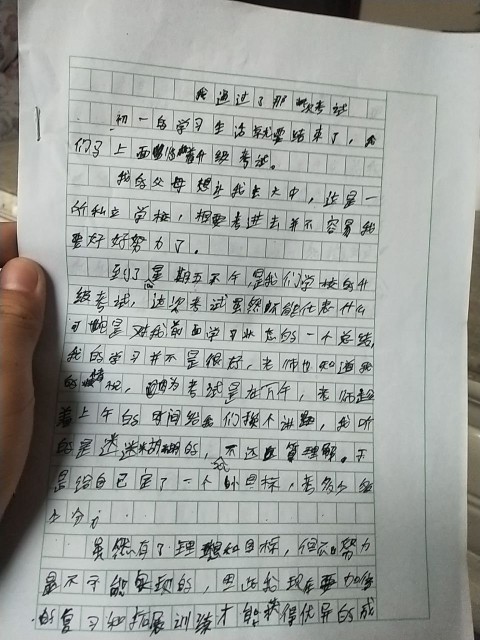 我通过了那次考试
初一的学习生活就要结束了，我
们马上面临着升级考试。
我的父母想让我上大中，这是一
所私立学校，想要考进去并不容易我
要好好努力了。
到了星期五下午，是我们学校的升
级考试，这次考试虽然不能代表什么
可是对我前面学习状态的一个总结，
我的学习并不是很好，老师也知道我
的情况，因为考试是在下午，老师趁
着上午的时间给我们挨个讲题，我听
的是迷迷糊糊的，不过也算理解。于
是给自己定了一个小目标，考多少
分
虽然有了理想和目标，但不努力
是不可能实现的，因此我现在要加倍
的复习和拓展训练才能获得优异的成